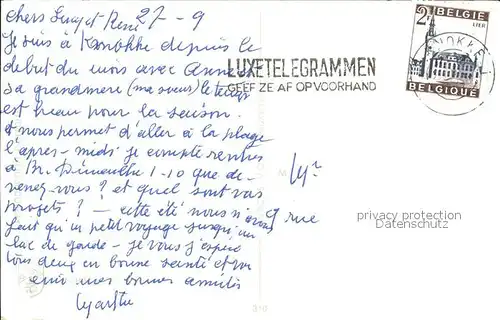 chers et René 27-9
Je suis à Knokke depuis le
début du mois avec
sa grandmère (ma soeur) le temps
est beau pour la saison.
et nous permet d'aller à la plage
l'après-midi je compte rentrer
à Br. Dimanche 1-10 que de-
venez-vous? et quel sont vos
projets? — cette été nous n'avons
fait qu'un petit voyage jusqu'au
lac de garde - je vous espère
tous deux en bonne santé et vous
envoie mes bonnes amitiés
Marthe
LUXETELEGRAMMEN
GEEF ZE AF OP VOORHAND
2F BELGIE
LIER
BELGIQUE
KNOKKE
Mr
9 rue
privacy protection
Datenschutz